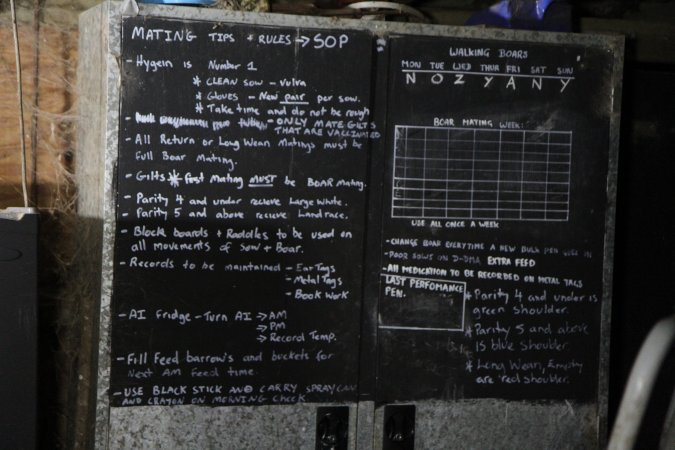 MATING TIPS + RULES → SOP
- Hygein is Number 1
* CLEAN SOW - Vulva
* GLOVES - New pair per sow.
* Take time and do not be rough
- ONLY MATE GILTS
THAT ARE VACCINATED
- All Return or Long Wean Matings must be
full Boar Mating.
- Gilts * First Mating MUST be BOAR Mating.
- Parity 4 and under recieve Large White.
- Parity 5 and above recieve Landrace.
- Block boards + Raddles to be used on
all movements of Sow + Boar.
- Records to be maintained - Ear Tags
- Metal Tags
- Book Work
- AI Fridge - Turn AI → AM
→ PM
→ Record Temp.
- Fill Feed barrow's and buckets for
Next AM feed time.
- USE BLACK STICK AND CARRY SPRAY CAN
AND CRAYON ON MORNING CHECK
WALKING BOARS
MON TUE WED THUR FRI SAT SUN
N O Z Y A N Y
BOAR MATING WEEK:
USE ALL ONCE A WEEK
- CHANGE BOAR EVERYTIME A NEW BULK PEN GOES IN
- POOR SOWS ON D-DMA EXTRA FEED
- All MEDICATION TO BE RECORDED ON METAL TAGS
LAST PERFOMANCE
PEN.
* Parity 4 and under is
green shoulder.
* Parity 5 and above
is blue shoulder.
* Long Wean, Empty
are red shoulder.